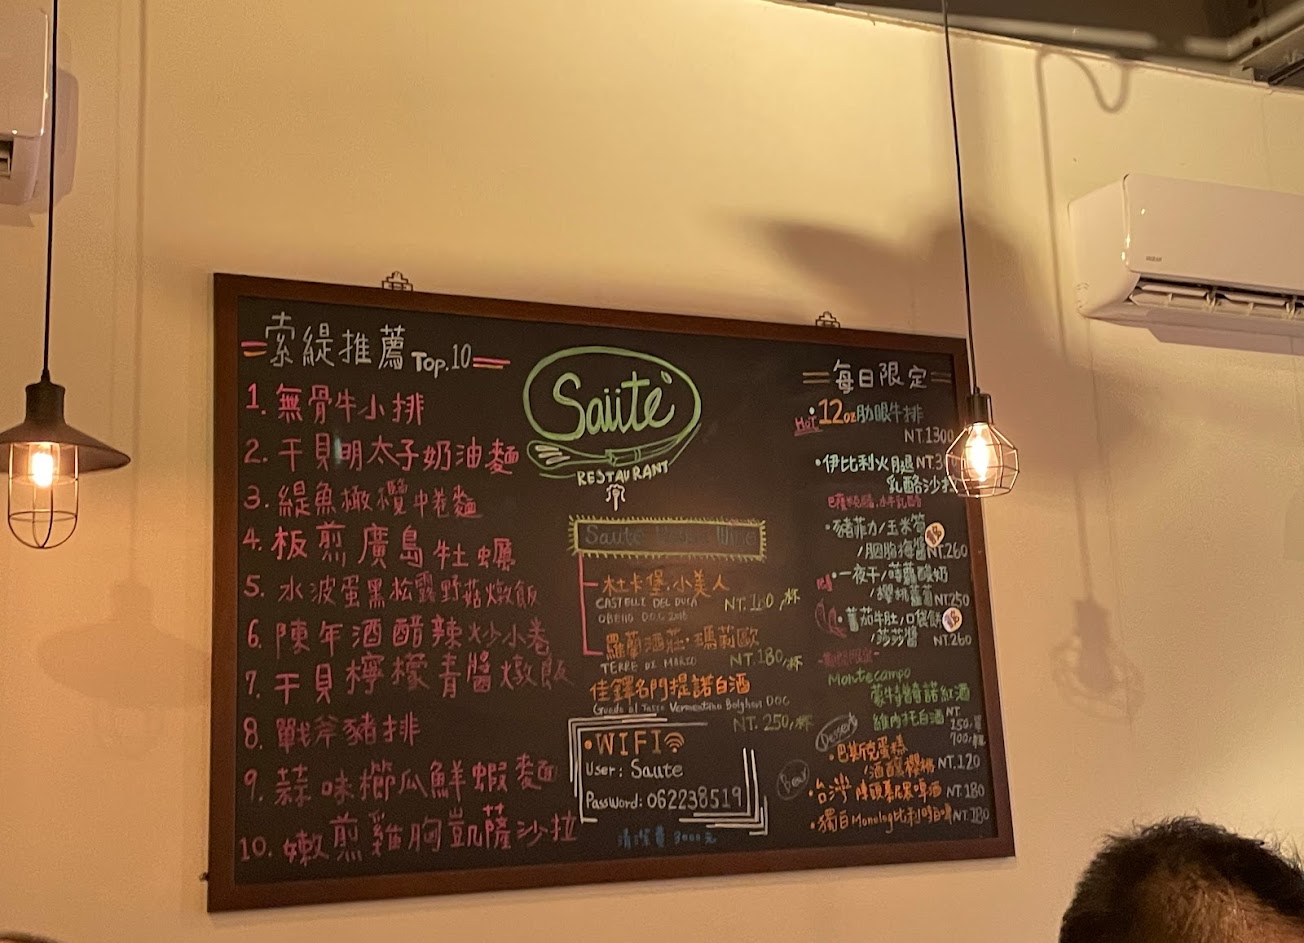 索緹推薦 Top.10
1. 無骨牛小排
2. 干貝明太子奶油麵
3. 緹魚橄欖中卷麵
4. 板煎廣島牡蠣
5. 水波蛋黑松露野菇燉飯
6. 陳年酒醋辣炒小卷
7. 干貝檸檬青醬燉飯
8. 戰斧豬排
9. 蒜味櫛瓜鮮蝦麵
10. 嫩煎雞胸凱薩沙拉
Saüte
RESTAURANT
Saute House Wine
杜卡堡.小美人
CASTELLI DEL DUCA NT. /杯
羅蘭酒莊.瑪莉歐
TERRE DI MARIO NT.180/杯
佳鐸名門提諾白酒
Guado al Tasso Vermentino Bolgheri DOC
NT. 250/杯
WIFI
User: Saute
Password: 062238519
清潔費 3000元
每日限定
Hot 12oz肋眼牛排
NT.1300
伊比利火腿 NT.3
乳酪沙拉
豬菲力/玉米筍
/胭脂梅醬 NT.260
一夜干/蒔蘿酸奶
/櫻桃蘿蔔 NT.250
蕃茄牛肚/口袋餅
/莎莎醬 NT.260
Montecampo
紅酒
維內托白酒
Dessert
巴斯克蛋糕
NT.120
Beer
台灣 啤酒 NT.180
獨白Monolog比利時白啤 NT.180